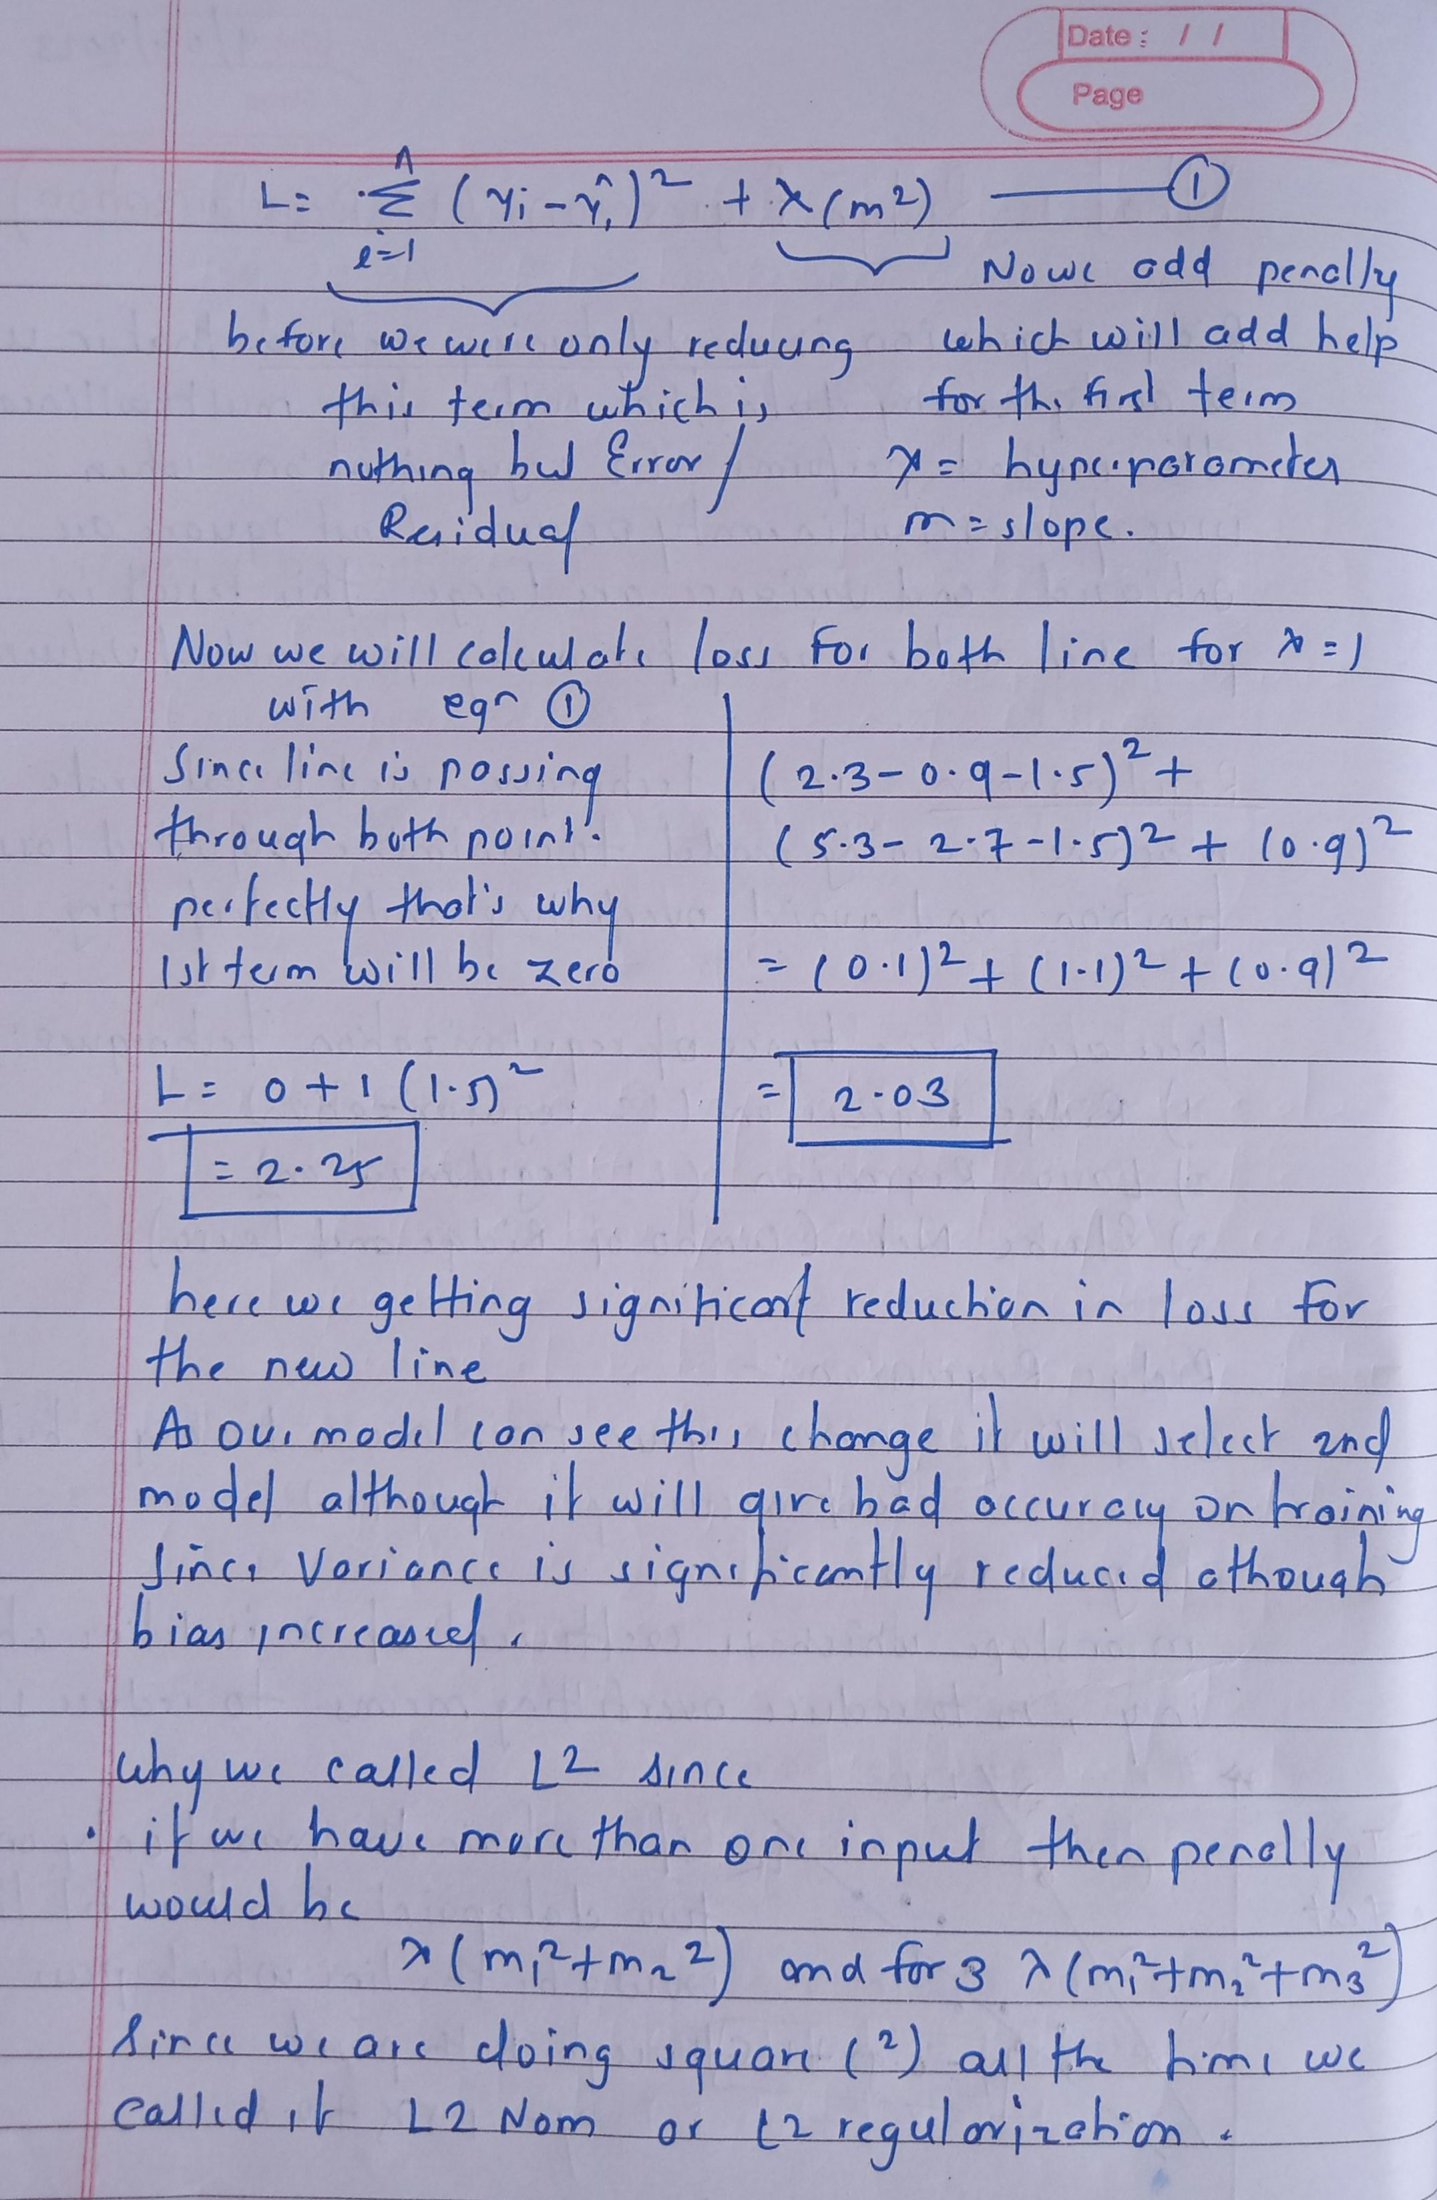 Date : / /
Page
L= Σ (yi - ŷi)² + λ(m²) ——— ①
n
i=1
Now we add penalty
before we were only reducing which will add help
this term which is for the first term
nothing but Error / λ = hyperparameter
Residual m = slope.
Now we will calculate loss for both line for λ = 1
with eqn ①
Since line is passing
through both point.
perfectly that's why
1st term will be zero
L = 0 + 1 (1.5)²
= 2.25
(2.3 - 0.9 - 1.5)² +
(5.3 - 2.7 - 1.5)² + (0.9)²
= (0.1)² + (1.1)² + (0.9)²
= 2.03
here we getting significant reduction in loss for
the new line
As our model can see this change it will select 2nd
model although it will give bad accuracy on training
Since Variance is significantly reduced athough
bias increased.
Why we called L2 since
• if we have more than one input then penalty
would be
λ (m₁² + m₂²) and for 3 λ (m₁² + m₂² + m₃²)
Since we are doing square (²) all the time we
called it L2 Nom or L2 regularization.